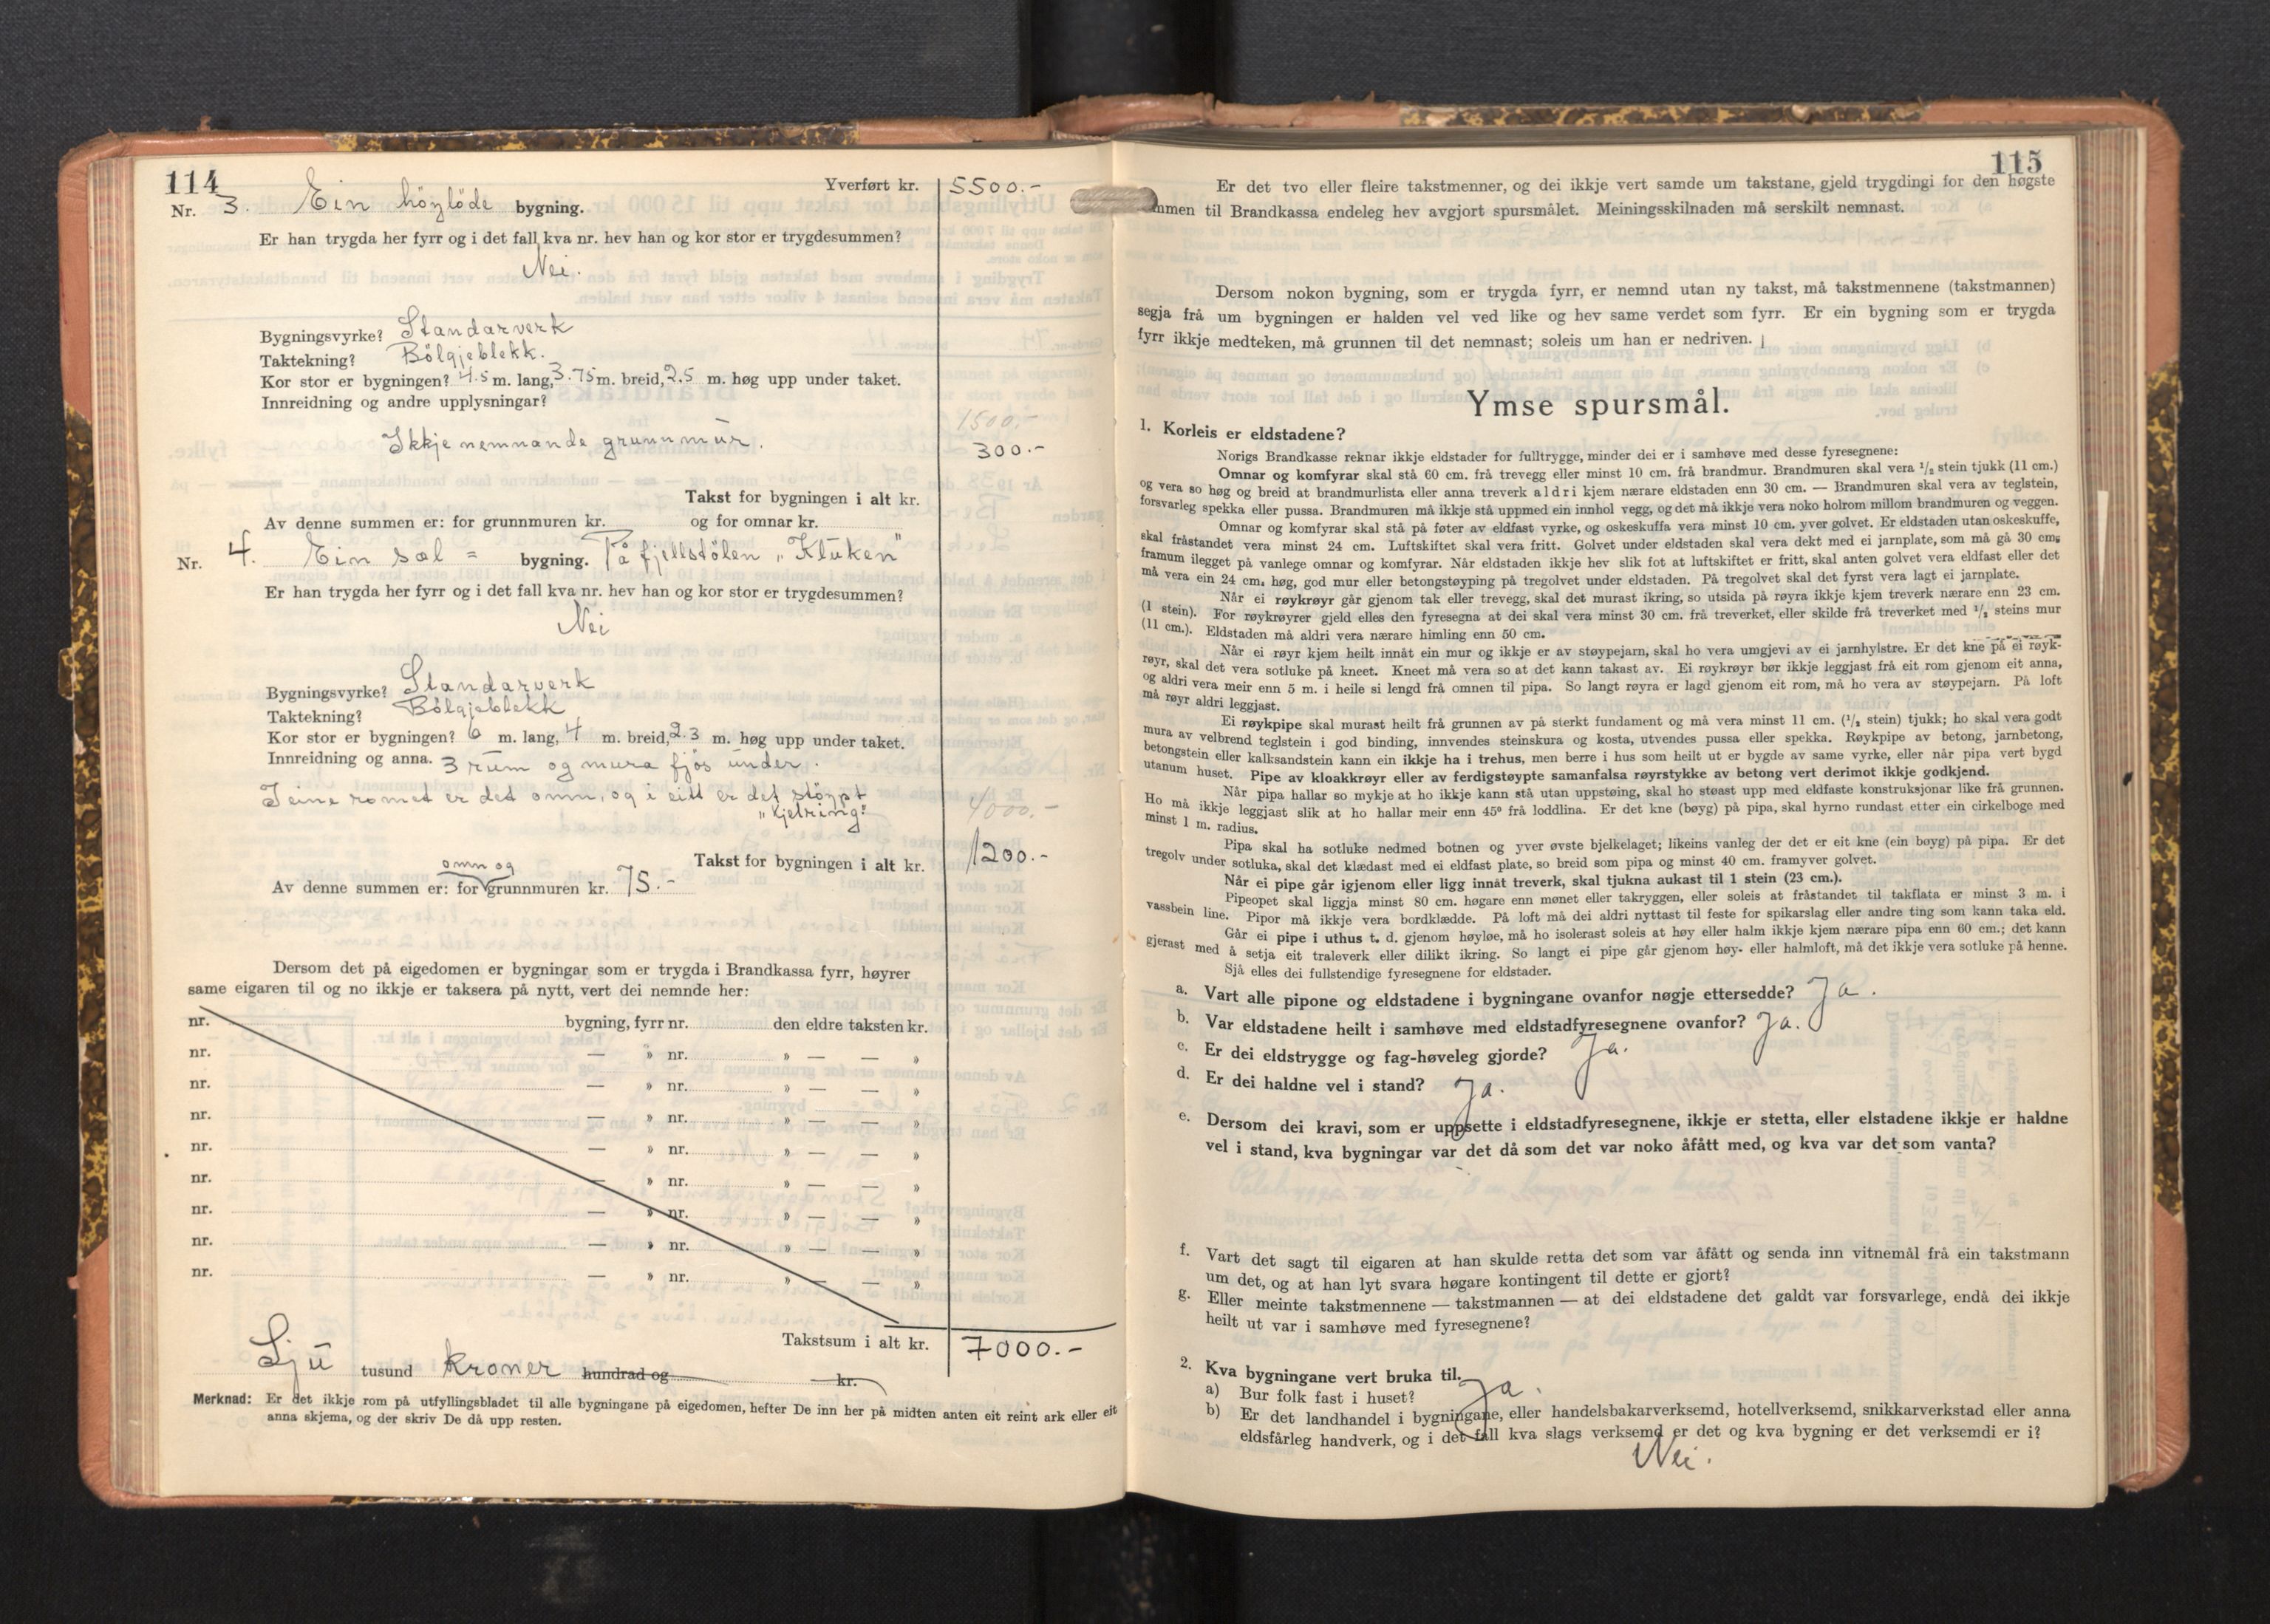 114
Yverført kr. 5500.-
Nr. 3. Ein höyløde bygning.
Er han trygda her fyrr og i det fall kva nr. hev han og kor stor er trygdesummen?
Nei.
Bygningsvyrke? Standarverk
Taktekning? Bölgjeblekk.
Kor stor er bygningen? 4.5 m. lang, 3.75 m. breid, 2.5 m. høg upp under taket.
Innreidning og andre upplysningar?
1500.-
Ikkje nemnande grunnmur. 300.-
Takst for bygningen i alt kr.
Av denne summen er: for grunnmuren kr. og for omnar kr.
Nr. 4. Ein sæl = bygning. På fjellstölen „Kluken"
Er han trygda her fyrr og i det fall kva nr. hev han og kor stor er trygdesummen?
Nei
Bygningsvyrke? Standarverk
Taktekning? Bölgjeblekk
Kor stor er bygningen? 6 m. lang, 4 m. breid, 2.3 m. høg upp under taket.
Innreidning og anna. 3 rum og mura fjös under.
I eine romet er det omn, og i eitt er det stöypt 4000.-
„kjelring"
Takst for bygningen i alt kr. 1200.-
omn og
Av denne summen er: for grunnmuren kr. 75.-
Dersom det på eigedomen er bygningar som er trygda i Brandkassa fyrr, høyrer
same eigaren til og no ikkje er taksera på nytt, vert dei nemnde her:
nr. bygning, fyrr nr. den eldre taksten kr.
nr. — » nr. » — — »
nr. — » nr. » — — »
nr. — » nr. » — — »
nr. — » nr. » — — »
nr. — » nr. » — — »
nr. — » nr. » — — »
nr. — » nr. » — — »
nr. — » nr. » — — »
Takstsum i alt kr. 7000.-
Sju tusund kroner hundrad og kr.
Merknad: Er det ikkje rom på utfyllingsbladet til alle bygningane på eigedomen, hefter De inn her på midten anten eit reint ark eller eit
anna skjema, og der skriv De då upp resten.
115
Er det tvo eller fleire takstmenner, og dei ikkje vert samde um takstane, gjeld trygdingi for den høgste
mmen til Brandkassa endeleg hev avgjort spursmålet. Meiningsskilnaden må serskilt nemnast.
Dersom nokon bygning, som er trygda fyrr, er nemnd utan ny takst, må takstmennene (takstmannen)
segja frå um bygningen er halden vel ved like og hev same verdet som fyrr. Er ein bygning som er trygda
fyrr ikkje medteken, må grunnen til det nemnast; soleis um han er nedriven.
Ymse spursmål.
1. Korleis er eldstadene?
Norigs Brandkasse reknar ikkje eldstader for fulltrygge, minder dei er i samhøve med desse fyresegnene:
Omnar og komfyrar skal stå 60 cm. frå trevegg eller minst 10 cm. frå brandmur. Brandmuren skal vera ½ stein tjukk (11 cm.)
og vera so høg og breid at brandmurlista eller anna treverk aldri kjem nærare eldstaden enn 30 cm. — Brandmuren skal vera av teglstein,
forsvarleg spekka eller pussa. Brandmuren må ikkje stå uppmed ein innhol vegg, og det må ikkje vera noko holrom millom brandmuren og veggen.
Omnar og komfyrar skal stå på føter av eldfast vyrke, og oskeskuffa vera minst 10 cm. yver golvet. Er eldstaden utan oskeskuffe,
skal fråstandet vera minst 24 cm. Luftskiftet skal vera fritt. Golvet under eldstaden skal vera dekt med ei jarnplate, som må gå 30 cm.
framum ilegget på vanlege omnar og komfyrar. Når eldstaden ikkje hev slik fot at luftskiftet er fritt, skal anten golvet vera eldfast eller det
må vera ein 24 cm. høg, god mur eller betongstøyping på tregolvet under eldstaden. På tregolvet skal det fyrst vera lagt ei jarnplate.
Når ei røykrøyr går gjenom tak eller trevegg, skal det murast ikring, so utsida på røyra ikkje kjem treverk nærare enn 23 cm.
(1 stein). For røykrøyrer gjeld elles den fyresegna at dei skal vera minst 30 cm. frå treverket, eller skilde frå treverket med ½ steins mur
(11 cm.). Eldstaden må aldri vera nærare himling enn 50 cm.
Når ei røyr kjem heilt innåt ein mur og ikkje er av støypejarn, skal ho vera umgjevi av ei jarnhylstre. Er det kne på ei røyk-
røyr, skal det vera sotluke på kneet. Kneet må vera so at det kann takast av. Ei røykrøyr bør ikkje leggjast frå eit rom gjenom eit anna,
og aldri vera meir enn 5 m. i heile si lengd frå omnen til pipa. So langt røyra er lagd gjenom eit rom, må ho vera av støypejarn. På loft
må røyr aldri leggjast.
Ei røykpipe skal murast heilt frå grunnen av på sterkt fundament og må vera minst 11 cm. (½ stein) tjukk; ho skal vera godt
mura av velbrend teglstein i god binding, innvendes steinskura og kosta, utvendes pussa eller spekka. Røykpipe av betong, jarnbetong,
betongstein eller kalksandstein kann ein ikkje ha i trehus, men berre i hus som heilt ut er bygde av same vyrke, eller når pipa vert bygd
utanum huset. Pipe av kloakkrøyr eller av ferdigstøypte samanfalsa røyrstykke av betong vert derimot ikkje godkjend.
Når pipa hallar so mykje at ho ikkje kann stå utan uppstøing, skal ho støast upp med eldfaste konstruksjonar like frå grunnen.
Ho må ikkje leggjast slik at ho hallar meir enn 45° frå loddlina. Er det kne (bøyg) på pipa, skal hyrno rundast etter ein cirkelboge med
minst 1 m. radius.
Pipa skal ha sotluke nedmed botnen og yver øvste bjelkelaget; likeins vanleg der det er eit kne (ein bøyg) på pipa. Er det
tregolv under sotluka, skal det klædast med ei eldfast plate, so breid som pipa og minst 40 cm. framyver golvet.
Når ei pipe går igjenom eller ligg innåt treverk, skal tjukna aukast til 1 stein (23 cm.).
Pipeopet skal liggja minst 80 cm. høgare enn mønet eller takryggen, eller soleis at fråstandet til takflata er minst 3 m. i
vassbein line. Pipor må ikkje vera bordklædde. På loft må dei aldri nyttast til feste for spikarslag eller andre ting som kann taka eld.
Går ei pipe i uthus t. d. gjenom høyløe, må ho isolerast soleis at høy eller halm ikkje kjem nærare pipa enn 60 cm.; det kann
gjerast med å setja eit traleverk eller dilikt ikring. So langt ei pipe går gjenom høy- eller halmloft, må det ikkje vera sotluke på henne.
Sjå elles dei fullstendige fyresegnene for eldstader.
a. Vart alle pipone og eldstadene i bygningane ovanfor nøgje ettersedde? Ja.
b. Var eldstadene heilt i samhøve med eldstadfyresegnene ovanfor? Ja.
c. Er dei eldstrygge og fag-høveleg gjorde? Ja.
d. Er dei haldne vel i stand? Ja.
e. Dersom dei kravi, som er uppsette i eldstadfyresegnene, ikkje er stetta, eller elstadene ikkje er haldne
vel i stand, kva bygningar var det då som det var noko åfått med, og kva var det som vanta?
f. Vart det sagt til eigaren at han skulde retta det som var åfått og senda inn vitnemål frå ein takstmann
um det, og at han lyt svara høgare kontingent til dette er gjort?
g. Eller meinte takstmennene — takstmannen — at dei eldstadene det galdt var forsvarlege, endå dei ikkje
heilt ut var i samhøve med fyresegnene?
2. Kva bygningane vert bruka til.
a) Bur folk fast i huset? Ja.
b) Er det landhandel i bygningane, eller handelsbakarverksemd, hotellverksemd, snikkarverkstad eller anna
eldsfårleg handverk, og i det fall kva slags verksemd er det og kva bygning er det verksemdi er i?
Nei.